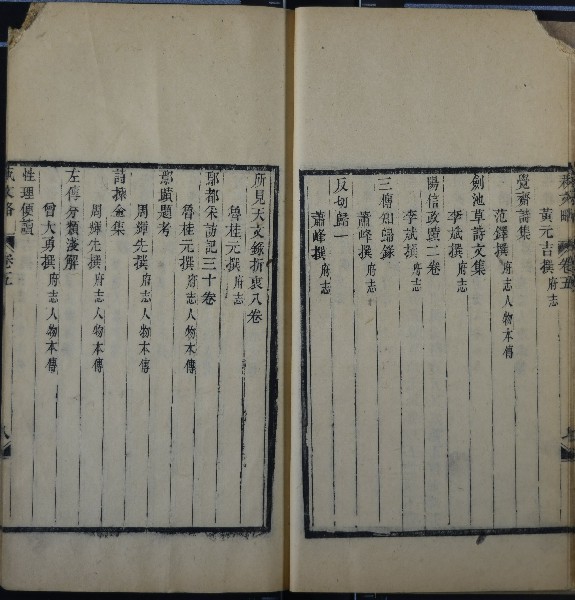 黃元吉撰府志
覺齋詩集
范鐸撰府志人物本傳
劍池草詩文集
李斌撰府志
陽信政蹟二卷
李斌撰府志
三僧知歸錄
蕭峰撰府志
反切歸一
蕭峰撰府志
所見天文錄折衷八卷
魯桂元撰府志
郡都采訪記三十卷
魯桂元撰府志人物本傳
蹟題考
周鐸先撰府志人物本傳
詩揀金集
周鐸先撰府志人物本傳
左傳分類淺解
曾大勇撰府志人物本傳
性理便讀
藝文略 卷五 八